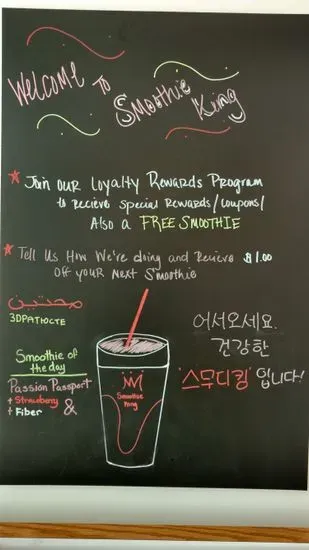 Welcome to
Smoothie
King
Join our Loyalty Rewards Program
to Recieve special Rewards/coupons/
Also a FREE SMOOTHIE
Tell Us How We're doing and Recieve $1.00
Off your Next Smoothie
3DPATIOCTE
Smoothie of
the day
Passion Passport
+ Strawberry &
+ Fiber
Smoothie
King
어서오세요.
건강한
'스무디킹' 입니다!